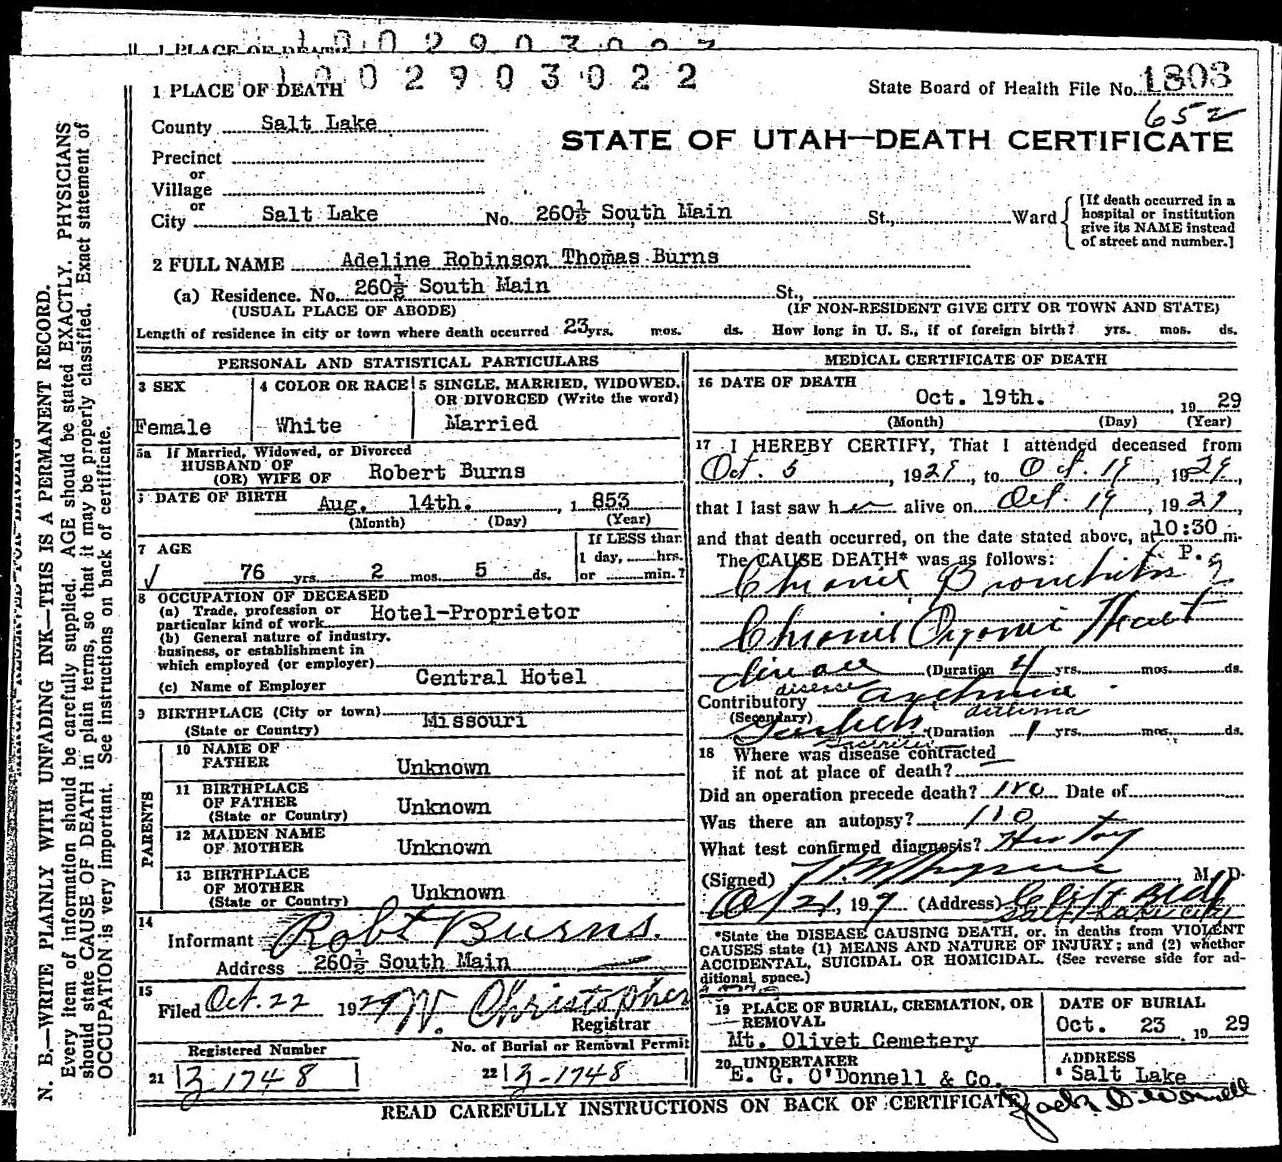 1 PLACE OF DEATH
1002903022
State Board of Health File No. 1803
652
County Salt Lake
STATE OF UTAH—DEATH CERTIFICATE
Precinct
or
Village
or
City Salt Lake No. 260½ South Main St., Ward
[If death occurred in a
hospital or institution
give its NAME instead
of street and number.]
2 FULL NAME Adeline Robinson Thomas Burns
(a) Residence. No. 260½ South Main St.,
(USUAL PLACE OF ABODE) (IF NON-RESIDENT GIVE CITY OR TOWN AND STATE)
Length of residence in city or town where death occurred 23 yrs. mos. ds. How long in U. S., if of foreign birth? yrs. mos. ds.
PERSONAL AND STATISTICAL PARTICULARS
3 SEX
Female
4 COLOR OR RACE
White
5 SINGLE, MARRIED, WIDOWED,
OR DIVORCED (Write the word)
Married
5a If Married, Widowed, or Divorced
HUSBAND OF
(OR) WIFE OF Robert Burns
6 DATE OF BIRTH Aug. 14th. , 1 853
(Month) (Day) (Year)
7 AGE
76 yrs. 2 mos. 5 ds.
If LESS than
1 day, hrs.
or min.?
8 OCCUPATION OF DECEASED
(a) Trade, profession or
particular kind of work Hotel-Proprietor
(b) General nature of industry,
business, or establishment in
which employed (or employer)
(c) Name of Employer Central Hotel
9 BIRTHPLACE (City or town)
(State or Country) Missouri
PARENTS
10 NAME OF
FATHER Unknown
11 BIRTHPLACE
OF FATHER
(State or Country) Unknown
12 MAIDEN NAME
OF MOTHER Unknown
13 BIRTHPLACE
OF MOTHER
(State or Country) Unknown
14
Informant Robt Burns.
Address 260½ South Main
15
Filed Oct. 22 1929 W. Christopher
Registrar
Registered Number
21 3-1748
No. of Burial or Removal Permit
22 3-1748
MEDICAL CERTIFICATE OF DEATH
16 DATE OF DEATH
Oct. 19th. , 19 29
(Month) (Day) (Year)
17 I HEREBY CERTIFY, That I attended deceased from
Oct. 5, 1929, to Oct. 19, 1929,
that I last saw her alive on Oct. 19, 1929,
and that death occurred, on the date stated above, at 10:30 m.
P.
The CAUSE DEATH* was as follows:
Chronic Bronchitis
Chronic Organic Heart
disease (Duration 4 yrs. mos. ds.
disease
Contributory asthma
asthma
(Secondary) (Duration 1 yrs. mos. ds.
18 Where was disease contracted
if not at place of death?
Did an operation precede death? no Date of
Was there an autopsy? no
What test confirmed diagnosis? History
(Signed) , M. D.
Oct 21, 19 9 (Address) Clift Bld
Salt Lake City
*State the DISEASE CAUSING DEATH, or, in deaths from VIOLENT
CAUSES state (1) MEANS AND NATURE OF INJURY; and (2) whether
ACCIDENTAL, SUICIDAL OR HOMICIDAL. (See reverse side for ad-
ditional space.)
19 PLACE OF BURIAL, CREMATION, OR
REMOVAL
Mt. Olivet Cemetery
DATE OF BURIAL
Oct. 23 19 29
20 UNDERTAKER
E. G. O'Donnell & Co.
ADDRESS
Salt Lake
Jack O'Donnell
READ CAREFULLY INSTRUCTIONS ON BACK OF CERTIFICATE
N. B.—WRITE PLAINLY WITH UNFADING INK—THIS IS A PERMANENT RECORD.
Every item of information should be carefully supplied. AGE should be stated EXACTLY. PHYSICIANS
should state CAUSE OF DEATH in plain terms, so that it may be properly classified. Exact statement of
OCCUPATION is very important. See instructions on back of certificate.